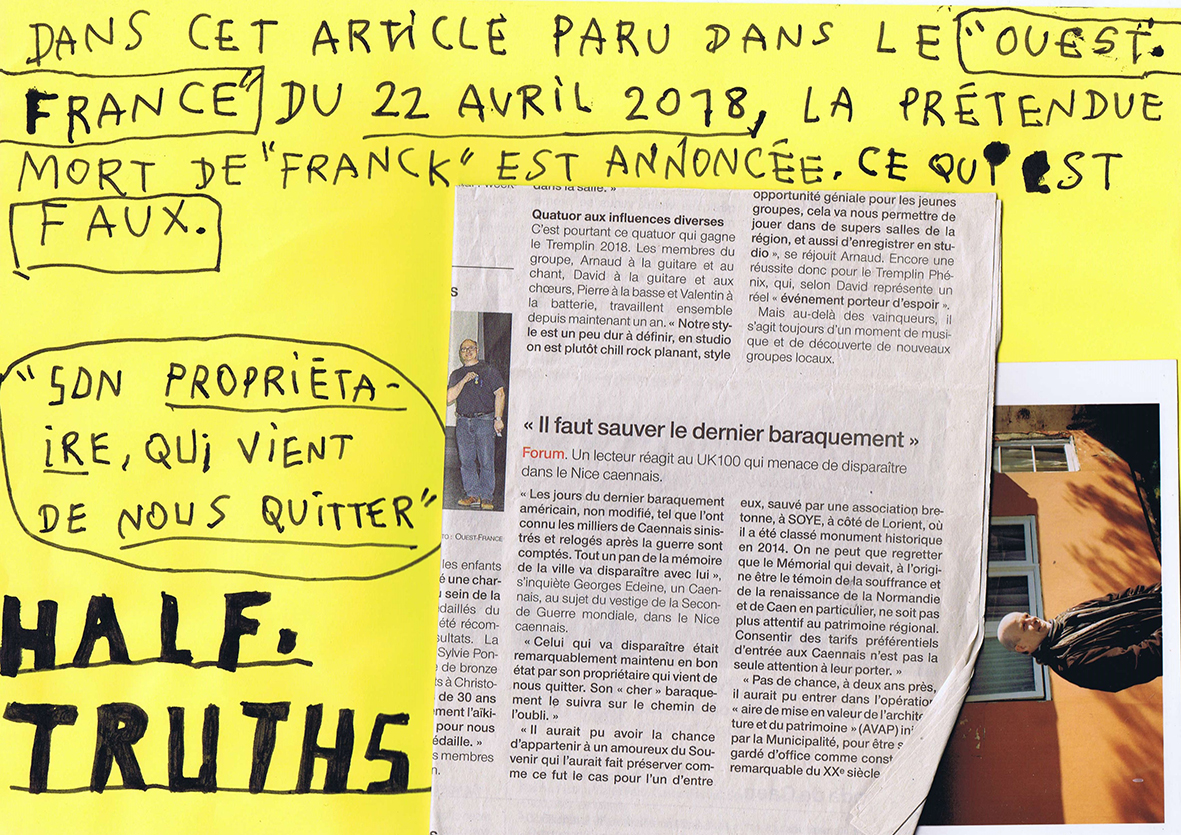 DANS CET ARTICLE PARU DANS LE "OUEST.
FRANCE" DU 22 AVRIL 2018, LA PRÉTENDUE
MORT DE "FRANCK" EST ANNONCÉE. CE QUI EST
FAUX.
"SON PROPRIÉTA-
IRE, QUI VIENT
DE NOUS QUITTER"
HALF.
TRUTHS
dans la salle. »
Quatuor aux influences diverses
C'est pourtant ce quatuor qui gagne
le Tremplin 2018. Les membres du
groupe, Arnaud à la guitare et au
chant, David à la guitare et aux
chœurs, Pierre à la basse et Valentin à
la batterie, travaillent ensemble
depuis maintenant un an. « Notre sty-
le est un peu dur à définir, en studio
on est plutôt chill rock planant, style
opportunité géniale pour les jeunes
groupes, cela va nous permettre de
jouer dans de supers salles de la
région, et aussi d'enregistrer en stu-
dio », se réjouit Arnaud. Encore une
réussite donc pour le Tremplin Phé-
nix, qui, selon David représente un
réel « événement porteur d'espoir ».
Mais au-delà des vainqueurs, il
s'agit toujours d'un moment de musi-
que et de découverte de nouveaux
groupes locaux.
S
OUEST-FRANCE
les enfants
é une char-
sein de la
daillés du
été récom-
sultats. La
Sylvie Pon-
de bronze
s à Christo-
de 30 ans
ment l'aïki-
pour nous
édaille. »
s membres
n.
« Il faut sauver le dernier baraquement »
Forum. Un lecteur réagit au UK100 qui menace de disparaître
dans le Nice caennais.
« Les jours du dernier baraquement
américain, non modifié, tel que l'ont
connu les milliers de Caennais sinis-
trés et relogés après la guerre sont
comptés. Tout un pan de la mémoire
de la ville va disparaître avec lui »,
s'inquiète Georges Edeine, un Caen-
nais, au sujet du vestige de la Secon-
de Guerre mondiale, dans le Nice
caennais.
« Celui qui va disparaître était
remarquablement maintenu en bon
état par son propriétaire qui vient de
nous quitter. Son « cher » baraque-
ment le suivra sur le chemin de
l'oubli. »
« Il aurait pu avoir la chance
d'appartenir à un amoureux du Sou-
venir qui l'aurait fait préserver com-
me ce fut le cas pour l'un d'entre
eux, sauvé par une association bre-
tonne, à SOYE, à côté de Lorient, où
il a été classé monument historique
en 2014. On ne peut que regretter
que le Mémorial qui devait, à l'origi-
ne être le témoin de la souffrance et
de la renaissance de la Normandie
et de Caen en particulier, ne soit pas
plus attentif au patrimoine régional.
Consentir des tarifs préférentiels
d'entrée aux Caennais n'est pas la
seule attention à leur porter. »
« Pas de chance, à deux ans près,
il aurait pu entrer dans l'opération
« aire de mise en valeur de l'archite
ture et du patrimoine » (AVAP) in
par la Municipalité, pour être s
gardé d'office comme const
remarquable du XXe siècle